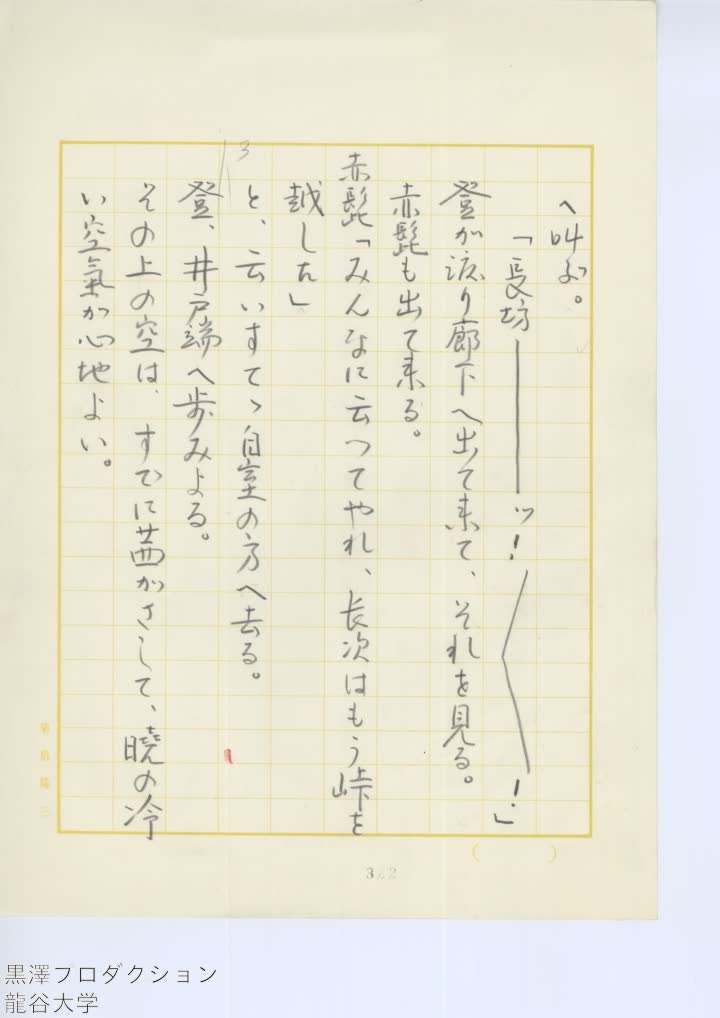 へ叫ぶ。
「長坊――――ッ！〉！」
登が渡り廊下へ出て来て、それを見る。
赤髭も出て来る。
赤髭「みんなに云つてやれ、長次はもう峠を
越した」
と、云いすてゝ自室の方へ去る。
登、井戸端へ歩みよる。
その上の空は、すでに茜がさして、暁の冷
い空氣が心地よい。
3
菊島隆三
(　　)
322
黒澤プロダクション
龍谷大学